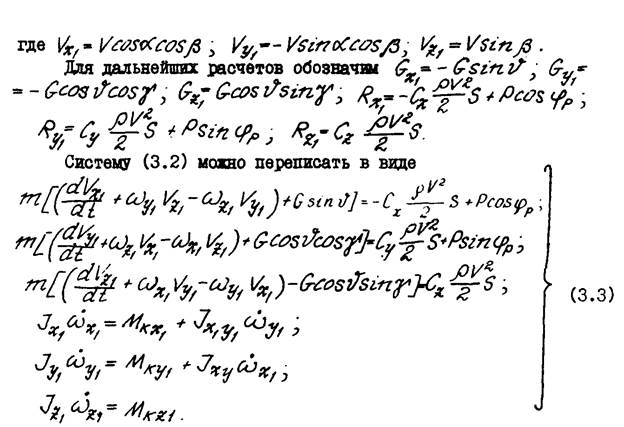 где Vx₁ = V cosα cosβ ; Vy₁ = -V sinα cosβ ; Vz₁ = V sinβ .
Для дальнейших расчетов обозначим Gx₁ = - G sin ϑ ; Gy₁ =
= - G cos ϑ cos γ ; Gz₁ = G cos ϑ sin γ ; Rx₁ = -Cx ρV²/2 S + P cos φp ;
Ry₁ = Cy ρV²/2 S + P sin φp ; Rz₁ = Cz ρV²/2 S.
Систему (3.2) можно переписать в виде
m[(dVx₁/dt + ωy₁ Vz₁ - ωz₁ Vy₁) + G sin ϑ] = -Cx ρV²/2 S + P cos φp ;
m[(dVy₁/dt + ωz₁ Vx₁ - ωx₁ Vz₁) + G cos ϑ cos γ] = Cy ρV²/2 S + P sin φp ;
m[(dVz₁/dt + ωx₁ Vy₁ - ωy₁ Vx₁) - G cos ϑ sin γ] = Cz ρV²/2 S ;
(3.3)
Jx₁ ω̇x₁ = Mкx₁ + Jx₁y₁ ω̇y₁ ;
Jy₁ ω̇y₁ = Mкy₁ + Jxy ω̇x₁ ;
Jz₁ ω̇z₁ = Mкz1 .